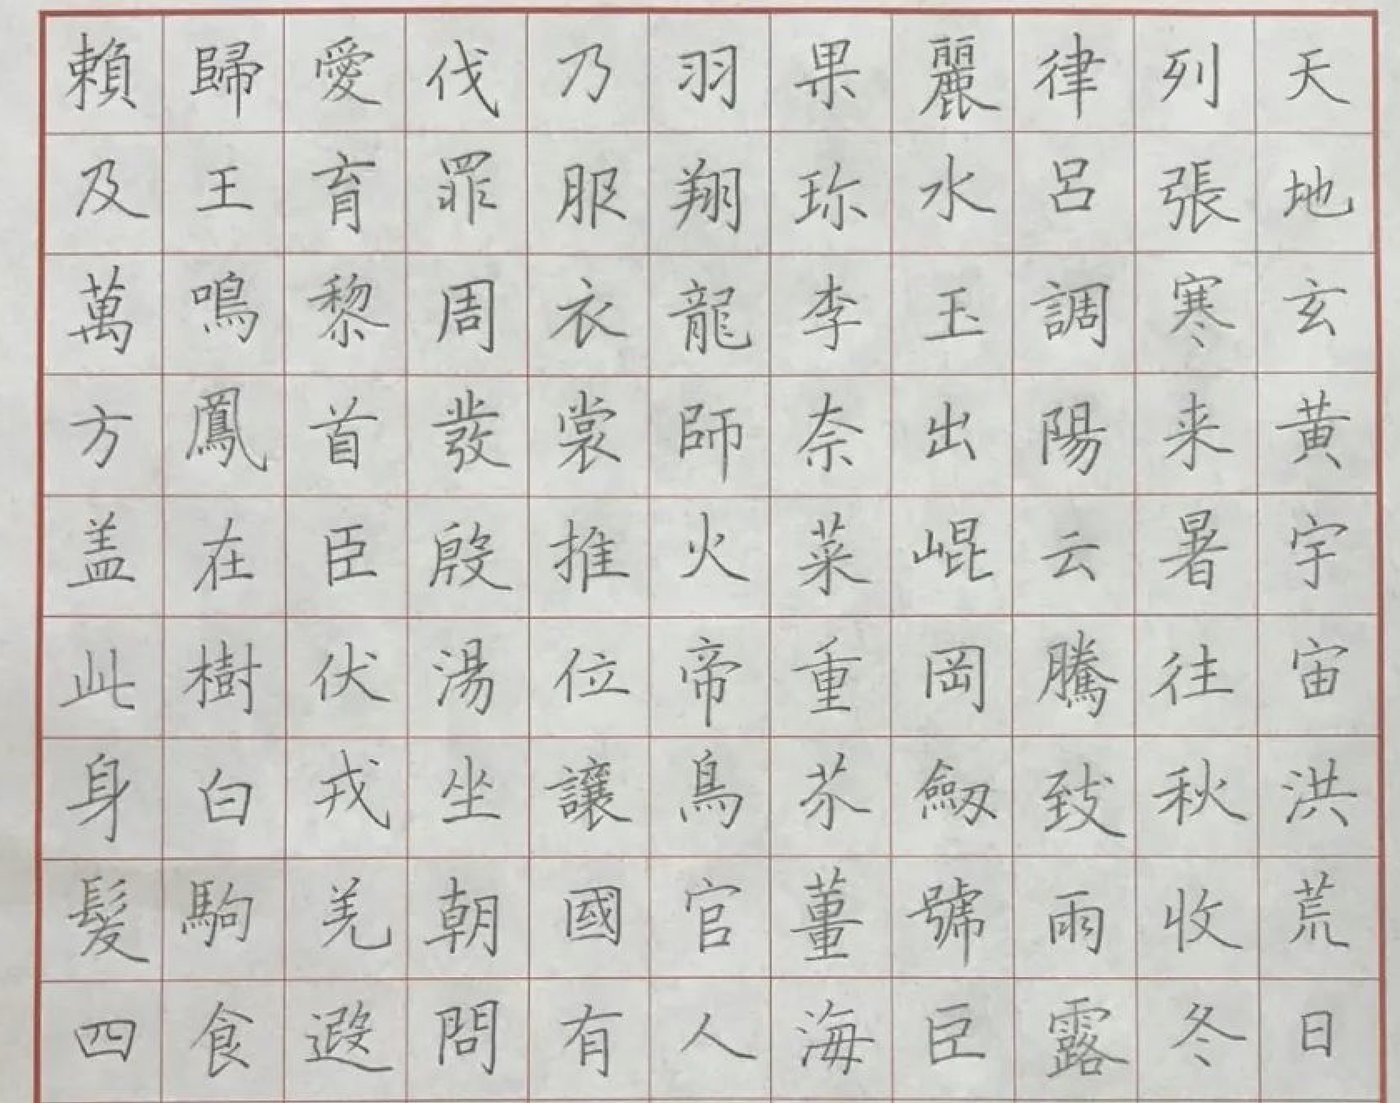 天地玄黄宇宙洪荒日
列張寒来暑往秋收冬
律呂調陽云騰致雨露
麗水玉出崐岡劔號巨
果珎李奈菜重芥董海
羽翔龍師火帝鳥官人
乃服衣裳推位讓國有
伐罪周發殷湯坐朝問
愛育黎首臣伏戎羌遐
歸王鳴鳳在樹白駒食
賴及萬方盖此身髮四